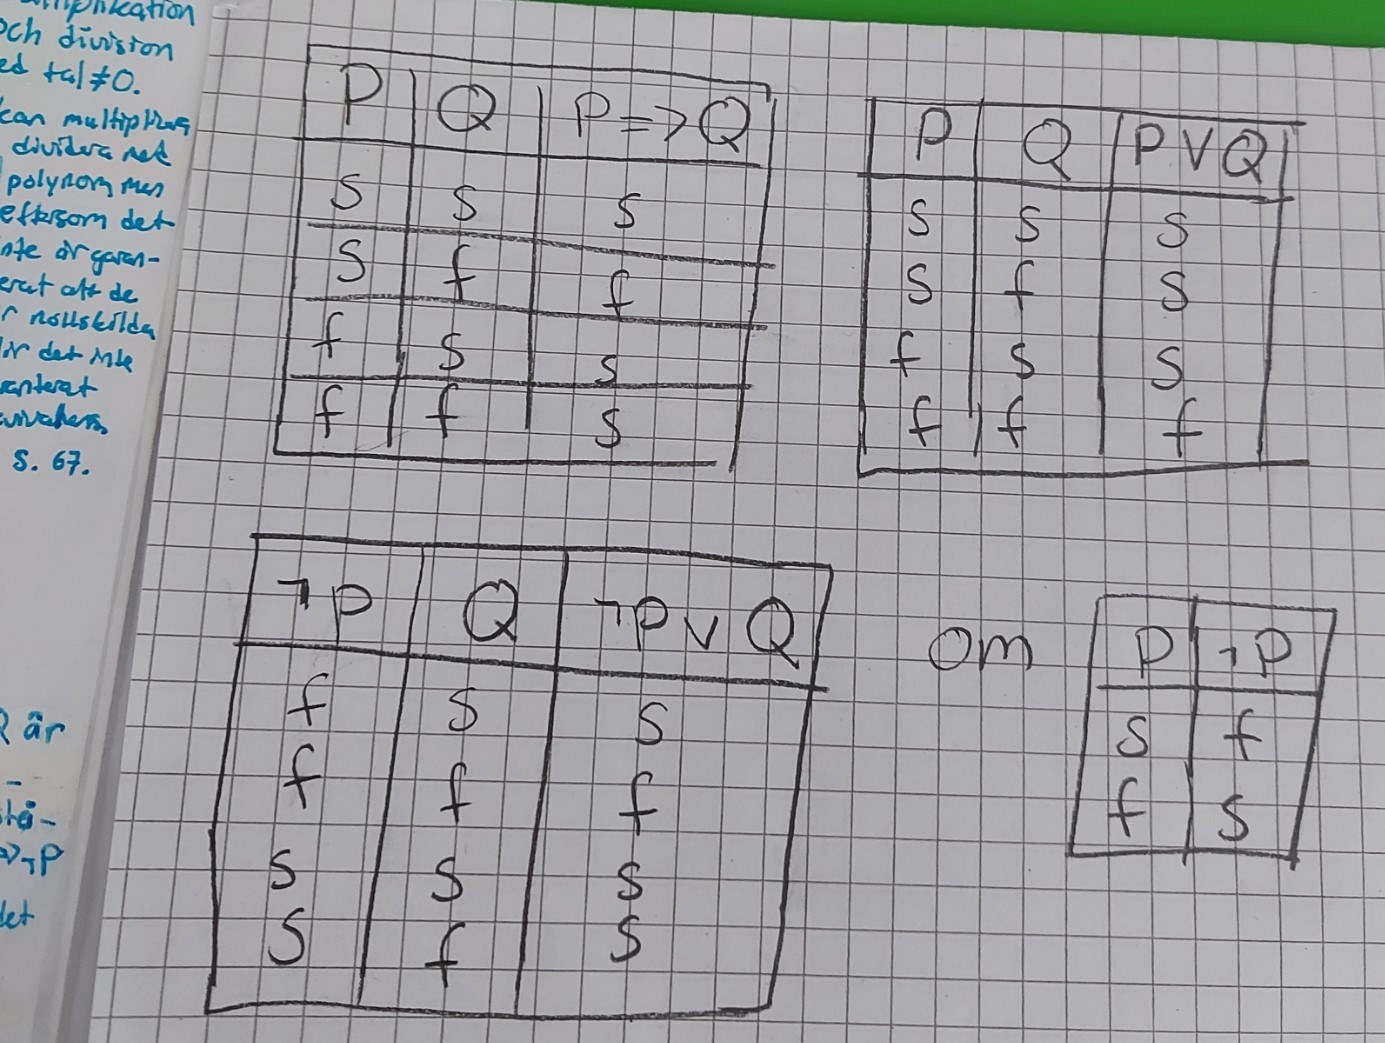 och division
tal≠0.
multiplicera
dividera med
polynom men
eftersom det
inte är garan-
erat att de
r nollskilda
är det inte
s. 67.
är
¬P
det
P Q P=>Q
s s s
s f f
f s s
f f s
P Q P∨Q
s s s
s f s
f s s
f f f
¬P Q ¬P∨Q
f s s
f f f
s s s
s f s
om
P ¬P
s f
f s